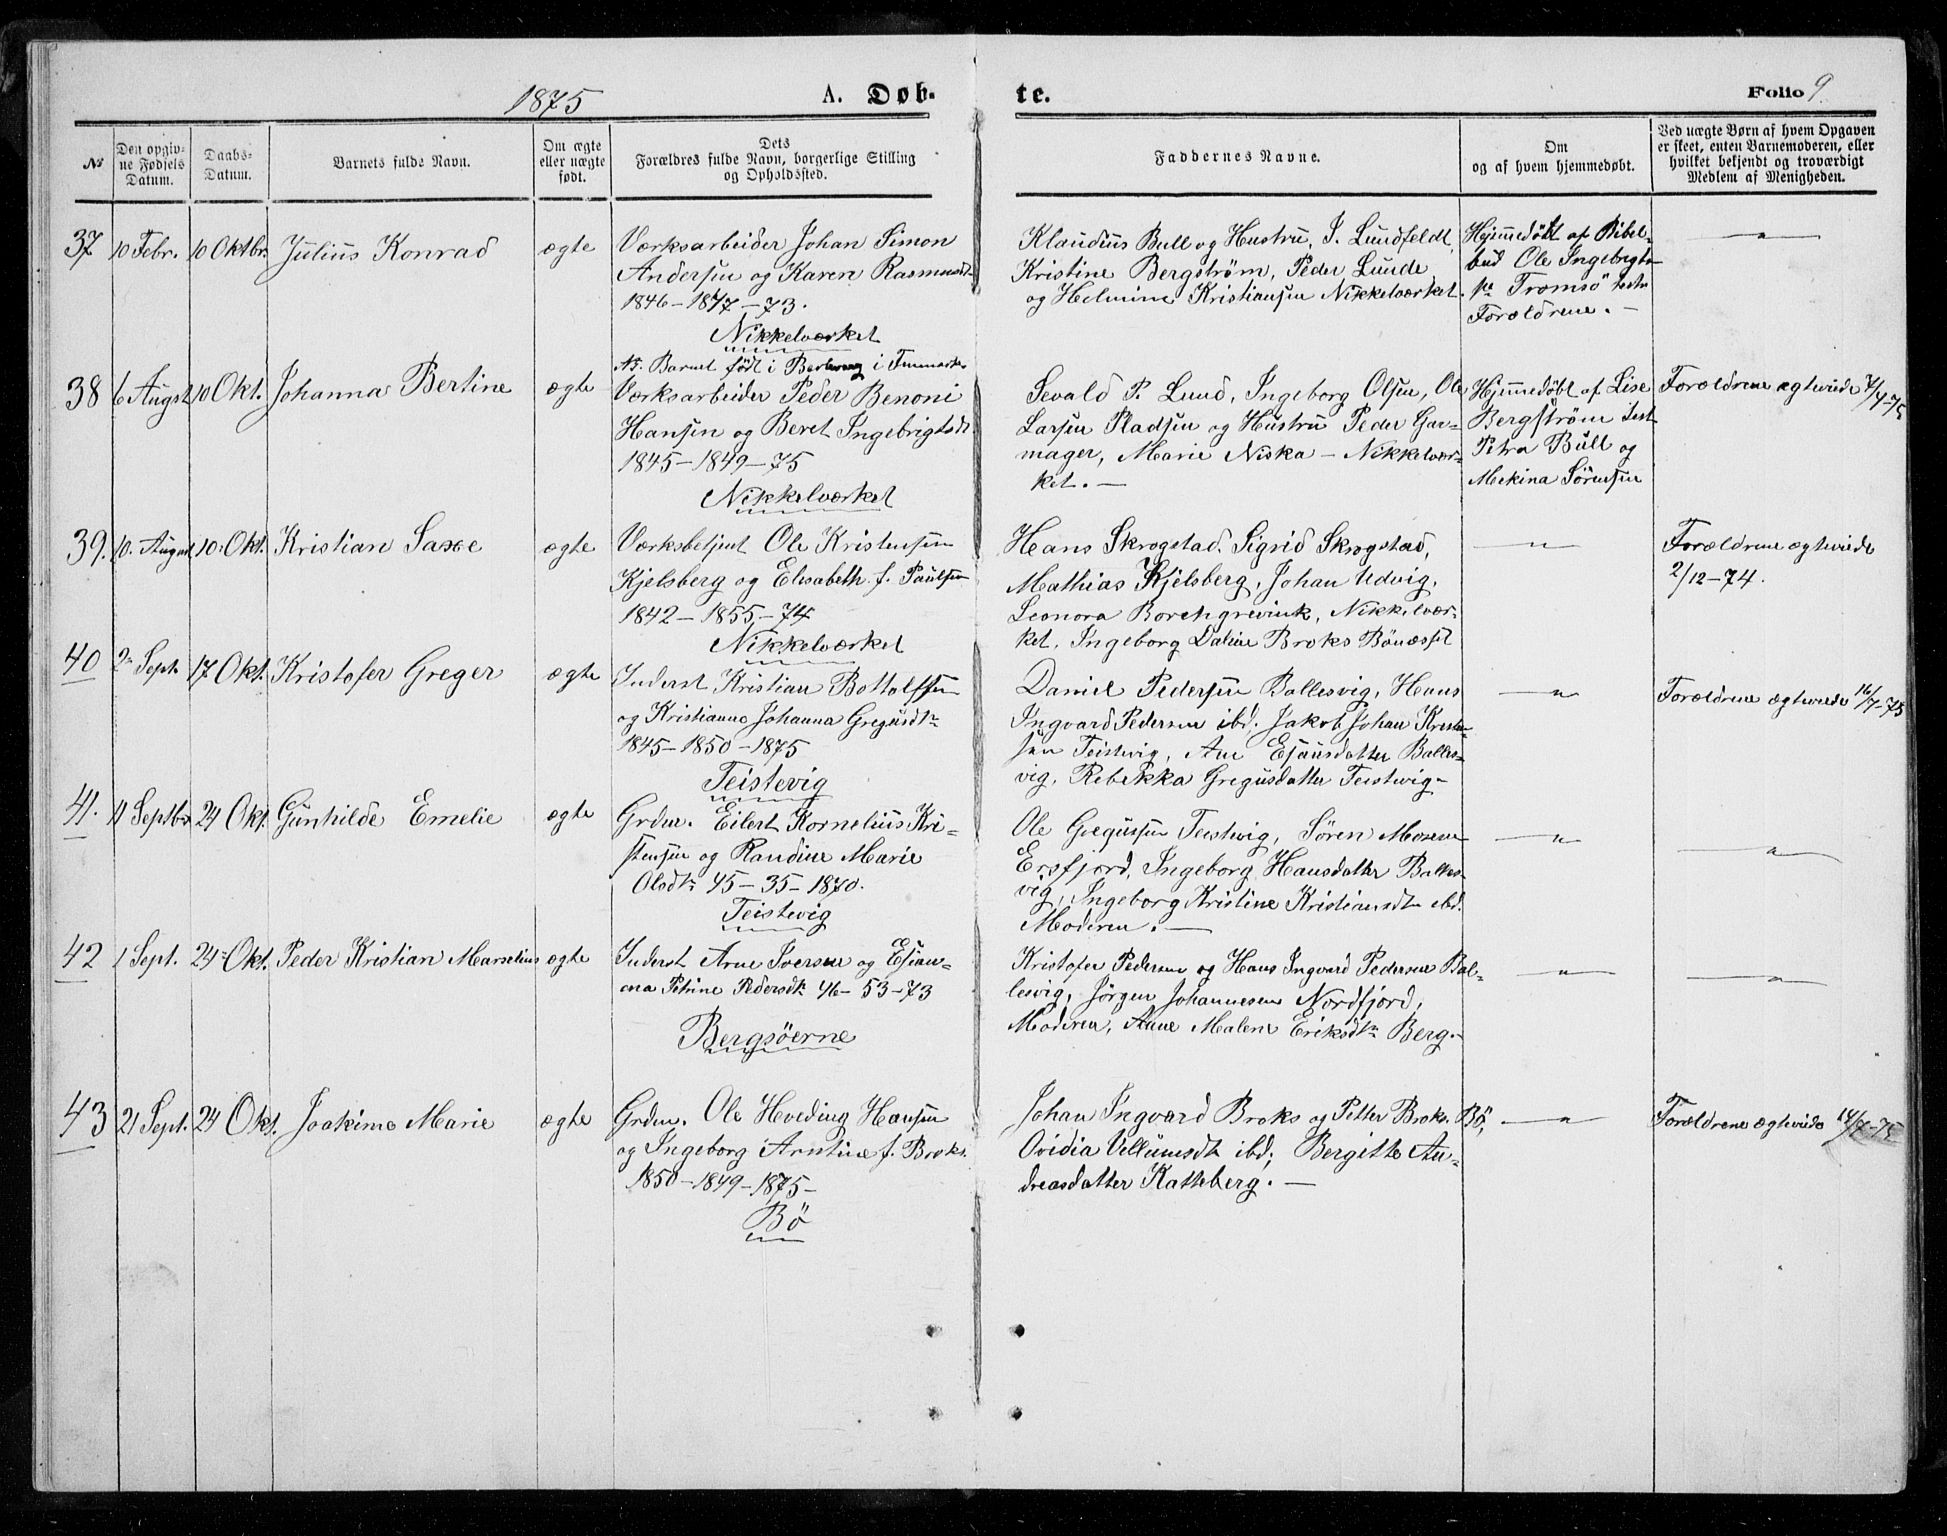 1875
A. Døb-
te.
Folio 9.
No
Den opgiv-
ne Fødsels
Datum.
Daabs-
Datum.
Barnets fulde Navn.
Om ægte
eller uægte
født.
Dets
Forældres fulde Navn, borgerlige Stilling
og Opholdssted.
Faddernes Navne.
Om
og af hvem hjemmedøbt.
Ved uægte Børn af hvem Opgaven
er skeet, enten Barnemoderen, eller
hvilket bekjendt og troværdigt
Medlem af Menigheden.
37 10 Febr. 10 Oktbr. Julius Konrad ægte
Værksarbeider Johan Simon
Andersen og Karen Rasmusdt
1846-1847-73.
Nikkelværket
Klaudius Bull og Hustru, J. Lundfeldt,
Kristine Bergstrøm, Peder Lunde
og Helmine Kristiansen Nikkelværket.
Hjemmedøbt af Bibel-
bud Ole Ingebrigts
pa Tromsö
Forældrene. -
N. Barnet født i i Finmarken
38 6 Augst 10 Okt. Johanna Bertine ægte
Værksarbeider Peder Benoni
Hansen og Beret Ingebrigtsdt
1845-1849-75
Nikkelværket
Sevald P. Lund, Ingeborg Olsen, Ole
Larsen Pladsen og Hustru Peder Gar-
mager, Marie Niska - Nikkelvær-
ket. -
Hjemmedøbt af Lise
Bergstrøm Test
Petra Bull og
Mekina Sörensen
Forældrene ægteviede 7/4-75
39. 10. August 10. Okt. Kristian Saxe ægte
Værksbetjent Ole Kristensen
Kjelsberg og Elisabeth f. Paulsen
1842-1855,-74
Nikkelværket
Hans Skrogstad. Sigrid Skrogstad,
Mathias Kjelsberg, Johan Udvig,
Leonora Borchgrevink, Nikkelvær-
ket, Ingeborg Broks Bönæsset
Forældrene ægteviede
2/12-74.
40 2 Sept. 17 Okt. Kristofer Greger ægte
Inderst Kristian Bottolfsen
og Kristianne Johanna Gregusdtr
1845-1850-1875
Teistevig
Daniel Pedersen Ballesvig, Hans
Ingvard Pedersen ibd. Jakob Johan Kristen-
sen Teistevig, Ane Esausdatter Balles-
vig, Rebekka Gregusdatter Teistevig-
Forældrene ægteviede 16/7-75
41. 11 Septbr 24 Okt. Gunhilde Emelie ægte
Grdm. Eilert Kornelius Kri-
stensen og Randine Marie
Olsdtr 45-35-1870.
Teistevig
Ole Gregussen Teistevig, Søren
Ersfjord, Ingeborg Hansdatter Balles-
vig, Ingeborg Kristine Kristiansdtr ibd.
Moderen. -
42 1 Sept. 24 Okt. Peder Kristian Marselius ægte
Inderst Arne Iversen og Esian-
na Petrine Pedersdtr 46-53-73
Bergsöerne
Kristofer Pedersen og Hans Ingvard Pedersen Bal-
lesvig, Jörgen Johannesen Nordfjord,
Moderen, Anne Malene Eriksdtr Berg.-
43 21 Sept. 24 Okt. Joakime Marie ægte
Grdm. Ole Hveding Hansen
og Ingeborg Arntine f. Broks.
1850-1849-1875-
Bö
Johan Ingvard Broks og Petter Broks. Bö,
Ovidia Vellumsdt ibd; Bergitte An-
dreasdatter Katteberg. -
Forældrene ægteviede 14/7-75